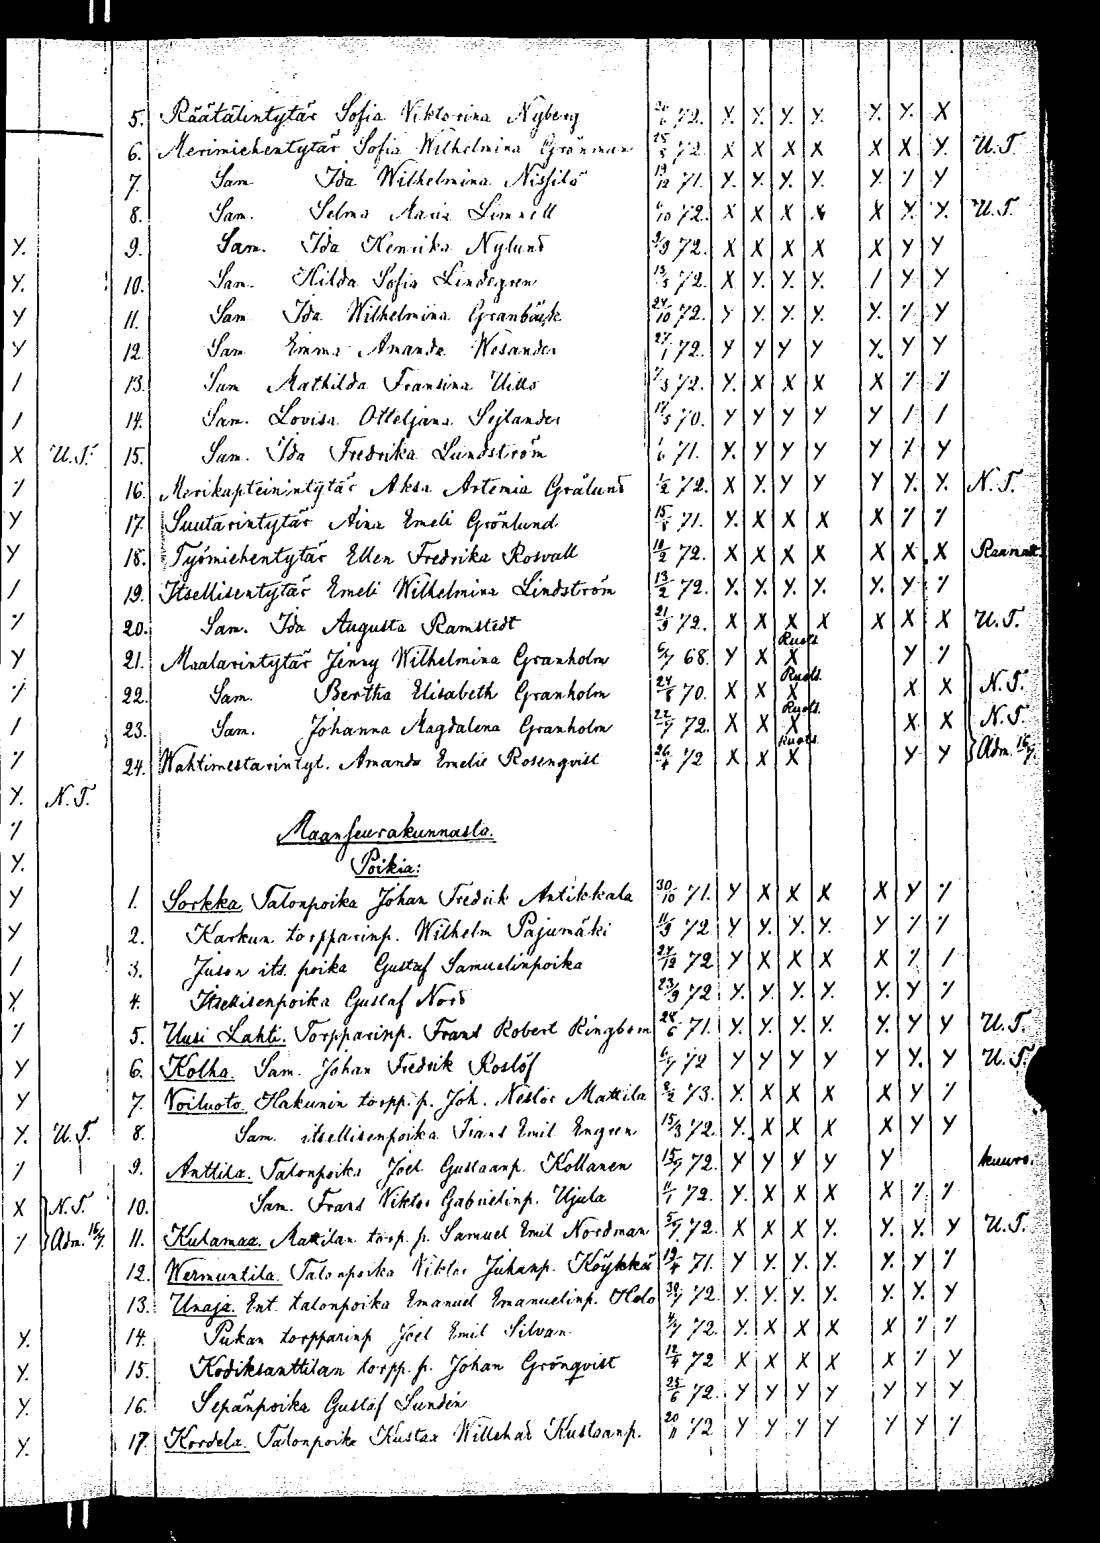 5. Räätälintytär Sofia Viktorina Nyberg 72. Y. Y. Y. Y. Y. Y. X
6. Merimiehentytär Sofia Wilhelmina Grönman 72. X X X X X X Y. U.T.
7. Sam Ida Wilhelmina 71. Y. Y. Y. Y. Y. Y
8. Sam. Selma Maria Limnell 72. X X X X X Y. Y. U.T.
Y. 9. Sam. Ida Henrika Nylund 72. X X X X X Y Y
Y. 10. Sam. Hilda Sofia Lindegren 13/5 72. X Y. Y. Y. / Y Y
Y 11. Sam Ida Wilhelmina Granbäck 24/10 72. Y Y. Y. Y. Y. Y
Y 12. Sam Emma Amanda Wesander 27/1 72. Y Y Y Y Y. Y Y
/ 13. Sam Mathilda Fransina 72. Y. X X X X
/ 14. Sam. Lovisa Sejlander 70. Y Y Y Y Y / /
X U.T. 15. Sam. Ida Fredrika Lundström 71. Y Y Y Y Y Y
16. Merikapteinintytär Aksa Artemia Grälund 1/2 72. X Y. Y Y Y Y. Y. N.T.
Y 17. Suutarintytär Aina Emeli Grönlund 15/8 71. Y. X X X X
Y 18. Työmiehentytär Ellen Fredrika Rosvall 18/2 72. X X X X X X X
/ 19. Itsellisentytär Emeli Wilhelmina Lindström 13/2 72. Y. Y. Y. Y. Y. Y
20. Sam. Ida Augusta Ramstedt 21/9 72. X X X X X X X U.T.
Y 21. Maalarintytär Jenny Wilhelmina Granholm 68. Y X Ruots. X Y
22. Sam. Bertha Elisabeth Granholm 24/8 70. X X Ruots. X X X N.T.
/ 23. Sam. Johanna Magdalena Granholm 22/7 72. X X Ruots. X X X N.T.
24. Wahtimestarintyt. Amanda Emelie Rosenqvist 26/4 72 X X Ruots. X Y Y Adm. 16/7.
Y. N.T.
Maanseurakunnasta.
Y. Poikia:
Y 1. Sorkka Talonpoika Johan Fredrik Antikkala 30/10 71. Y X X X X Y
Y 2. Karkun torpparinp. Wilhelm Pajumäki 11/9 72 Y Y. Y. Y. Y
/ 3. Juson its. poika Gustaf Samuelinpoika 24/12 72 Y X X X X /
Y. 4. Itsellisenpoika Gustaf Nord 23/9 72 Y. Y. Y. Y. Y. Y
5. Uusi Lahti. Torpparinp. Frans Robert Ringbom 28/6 71. Y. Y. Y. Y. Y. Y Y U.T.
Y 6. Kolha. Sam. Johan Fredrik Roslöf 6/7 72 Y Y Y Y Y Y. Y U.T.
Y 7. Voiluoto. Hakunin torpp. p. Joh. Nestor Mattila 73. Y X X X X Y
Y. U.T. 8. Sam. itsellisenpoika Frans Emil Engren 15/3 72. Y. X X X X Y Y
9. Anttila. Talonpoika Joel Gustaanp. Kollanen 15/7 72. Y Y Y Y Y kuuro.
X N.T. 10. Sam. Frans Viktor Gabrielinp. Ujula 11/1 72. Y. X X X X
Adm. 16/7. 11. Kulamaa. Mattilan torp. p. Samuel Emil Nordman 5/7 72. X X X Y. Y. Y. Y U.T.
12. Wermuntila. Talonpoika Viktor Juhanp. Köykkä 19/4 71. Y Y. Y. Y. Y. Y
13. Unaja. Ent. talonpoika Emanuel Emanuelinp. Holo 72. Y. Y. Y. Y. Y. Y. Y
Y. 14. Pukan torpparinp Joel Emil Silvan 72. Y. X X X X
Y. 15. Kodiksanttilan torpp. p. Johan Grönqvist 12/4 72 X X X X X Y
Y. 16. Sepänpoika Gustaf Sundén 25/6 72. Y Y Y Y Y Y Y
Y. 17. Kordela. Talonpoika Kustaa Willehad Kustaanp. 20/11 72 Y Y Y Y Y Y